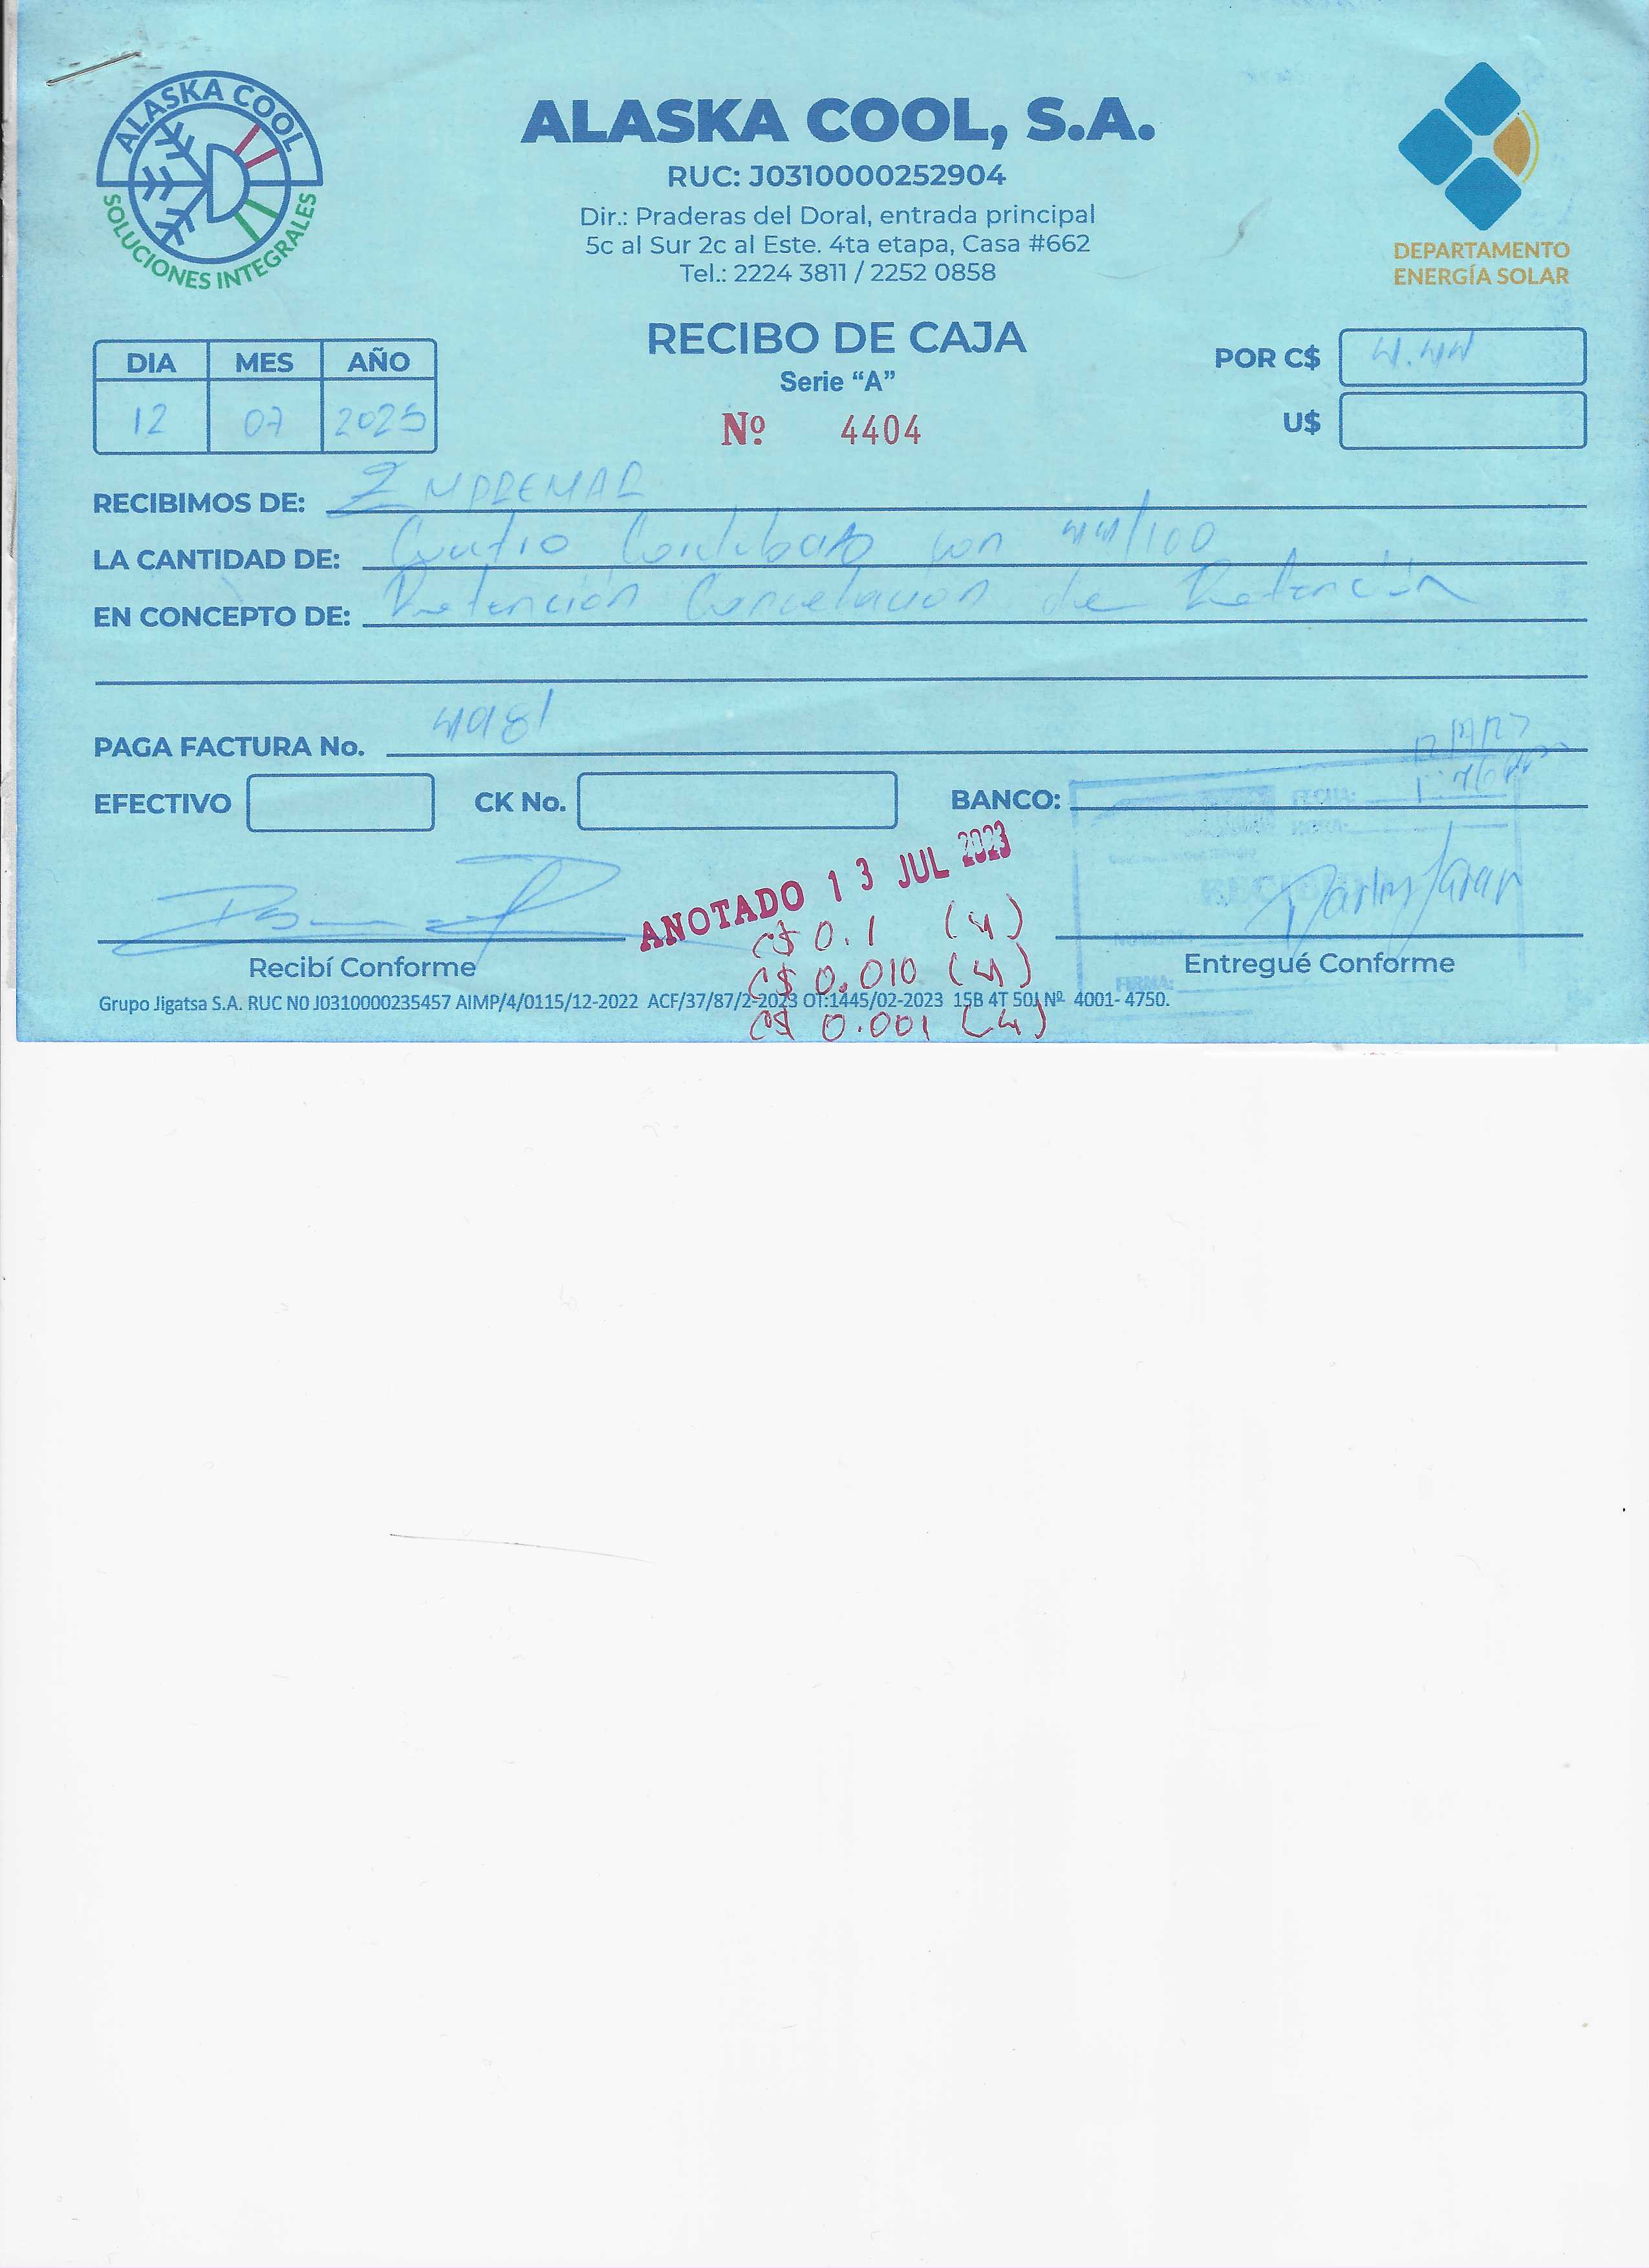 ALASKA COOL
SOLUCIONES INTEGRALES
ALASKA COOL, S.A.
RUC: J0310000252904
Dir.: Praderas del Doral, entrada principal
5c al Sur 2c al Este. 4ta etapa, Casa #662
Tel.: 2224 3811 / 2252 0858
DEPARTAMENTO
ENERGÍA SOLAR
RECIBO DE CAJA
Serie “A”
Nº 4404
DIA MES AÑO
12 07 2023
POR C$ 4.44
U$
RECIBIMOS DE: EMPREMAR
LA CANTIDAD DE: Cuatro Cordobas con 44/100
EN CONCEPTO DE: Retención Cancelacion de Retención
PAGA FACTURA No. 4981
EFECTIVO CK No. BANCO:
FECHA:
HORA:
RECIBIDO
ANOTADO 13 JUL 2023
C$ 0.1 (4)
C$ 0.010 (4)
C$ 0.001 (4)
Recibí Conforme
Entregué Conforme
FIRMA:
Grupo Jigatsa S.A. RUC N0 J0310000235457 AIMP/4/0115/12-2022 ACF/37/87/2-2023 OT:1445/02-2023 15B 4T 50J Nº 4001- 4750.